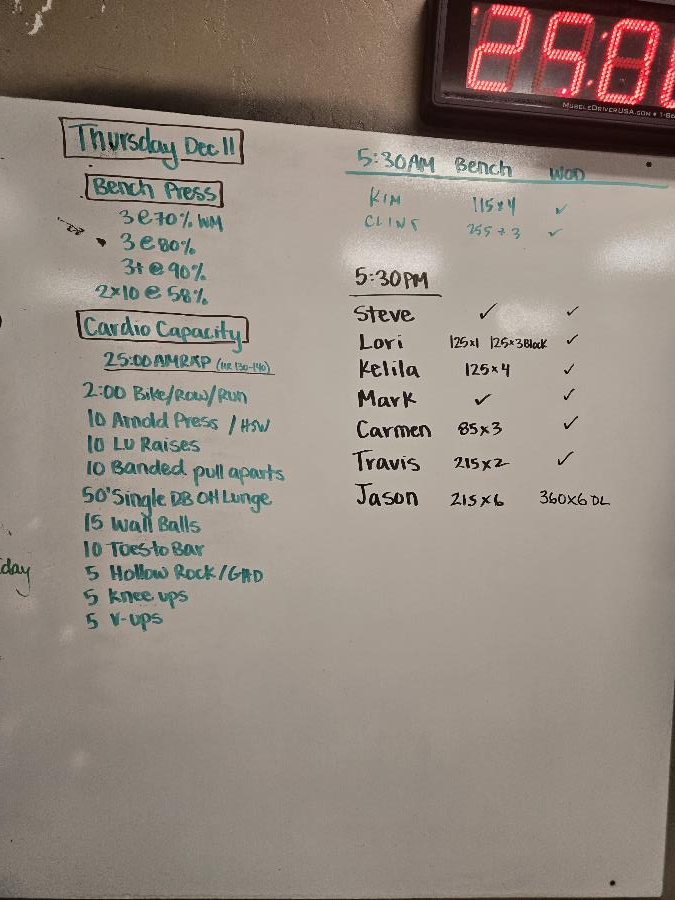 25:0
MUSCLEDRIVERUSA.COM • 1-8
Thursday Dec 11
Bench Press
3 @ 70% WM
3 @ 80%
3+ @ 90%
2x10 @ 58%
Cardio Capacity
25:00 AMRAP (HR 130-140)
2:00 Bike/Row/Run
10 Arnold Press / HSW
10 LU Raises
10 Banded pull aparts
50' Single DB OH Lunge
15 Wall Balls
10 Toes to Bar
5 Hollow Rock/GHD
5 knee ups
5 V-ups
day
5:30AM Bench WOD
KIM 115x4 ✓
CLINT 255 x 3 ✓
5:30PM
Steve ✓ ✓
Lori 125x1 125x3 Block ✓
Kelila 125x4 ✓
Mark ✓ ✓
Carmen 85x3 ✓
Travis 215x2 ✓
Jason 215x6 360x6 DL